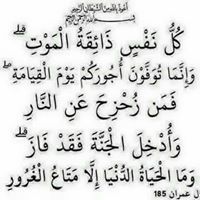 أعوذ بالله من الشيطان الرجيم
بسم الله الرحمن الرحيم
كُلُّ نَفْسٍ ذَائِقَةُ الْمَوْتِ ۗ
وَإِنَّمَا تُوَفَّوْنَ أُجُورَكُمْ يَوْمَ الْقِيَامَةِ ۖ
فَمَن زُحْزِحَ عَنِ النَّارِ
وَأُدْخِلَ الْجَنَّةَ فَقَدْ فَازَ ۗ
وَمَا الْحَيَاةُ الدُّنْيَا إِلَّا مَتَاعُ الْغُرُورِ
ل عمران 185